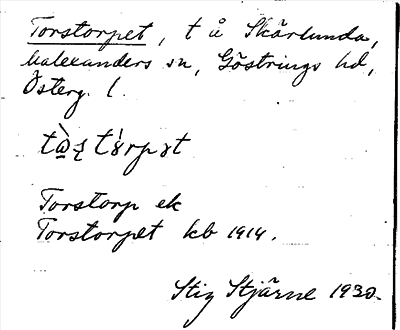 Torstorpet, t å Skärlunda,
Kalexanders sn, Göstrings hd,
Österg. l.
Torstorp ek
Torstorpet kb 1914.
Stig Stjärne 1930.